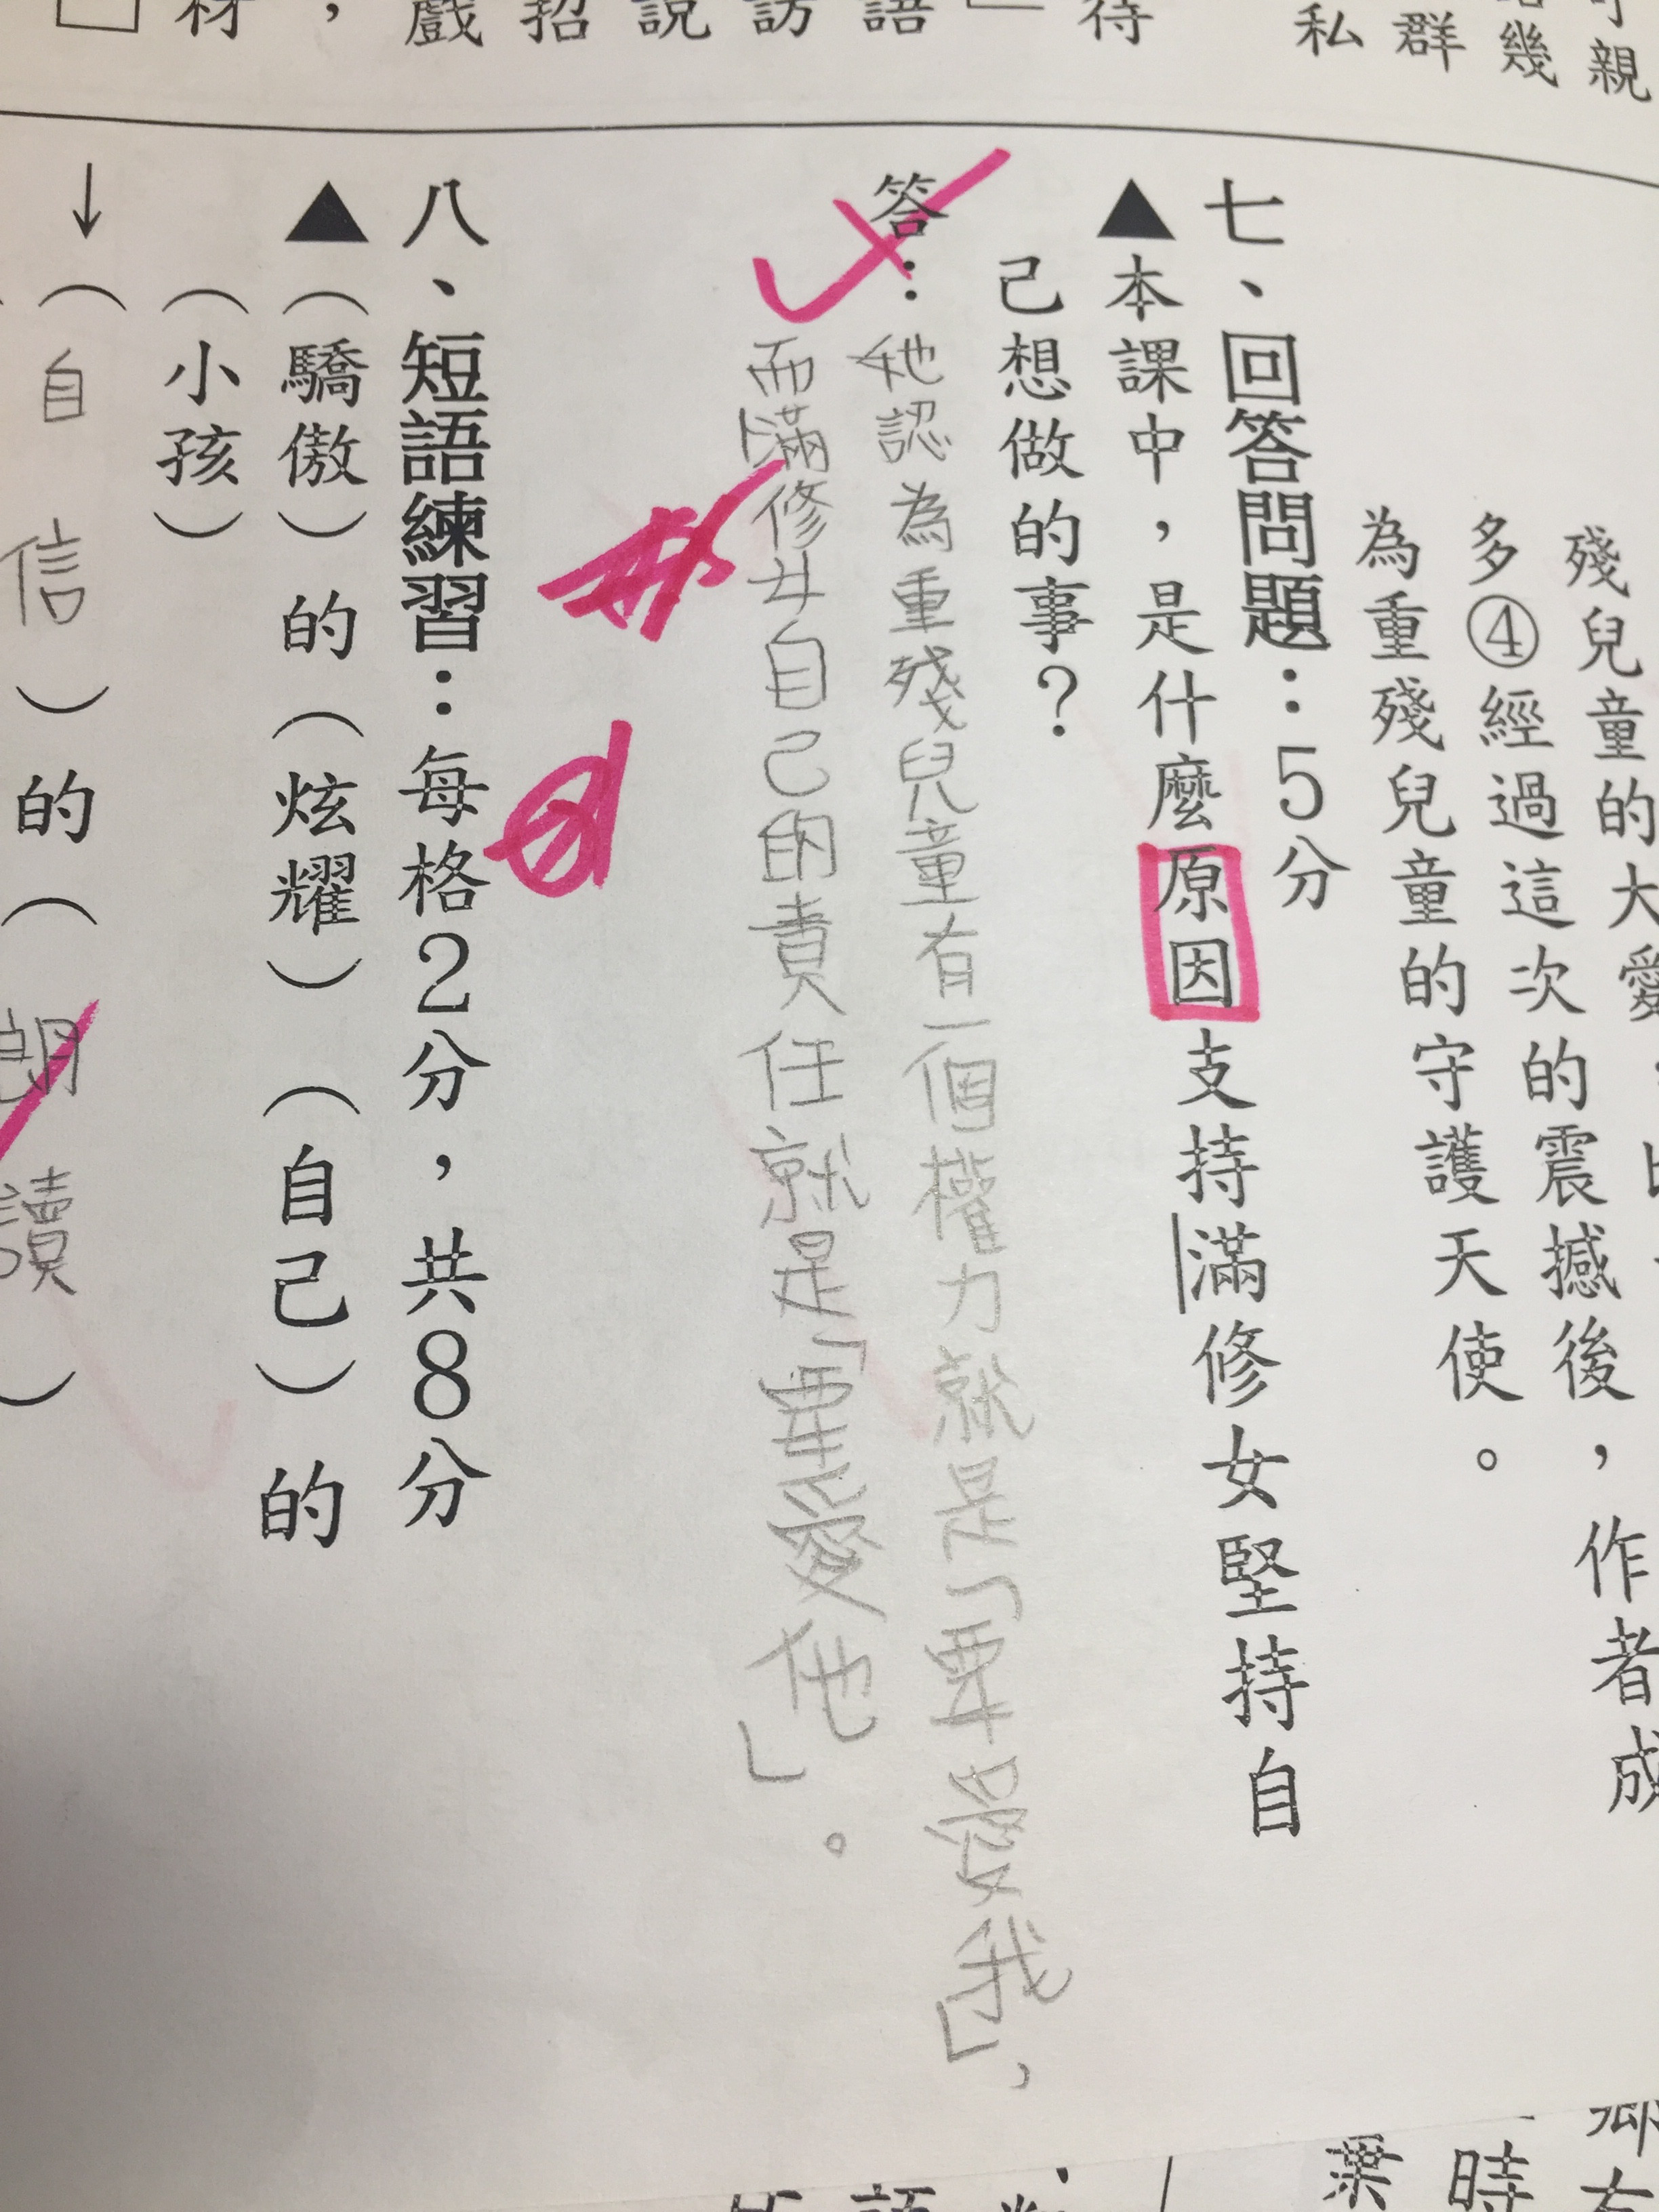 殘兒童的大愛
多④經過這次的震撼後，作者成
為重殘兒童的守護天使。
七、回答問題：5分
▲本課中，是什麼原因支持滿修女堅持自
己想做的事？
答：她認為重殘兒童有一個權力就是「要愛我」，
而滿修女自己的責任就是「要愛他」。
八、短語練習：每格2分，共8分
▲（驕傲）的（炫耀）（自己）的
（小孩）
↓（自信）的（朗讀）